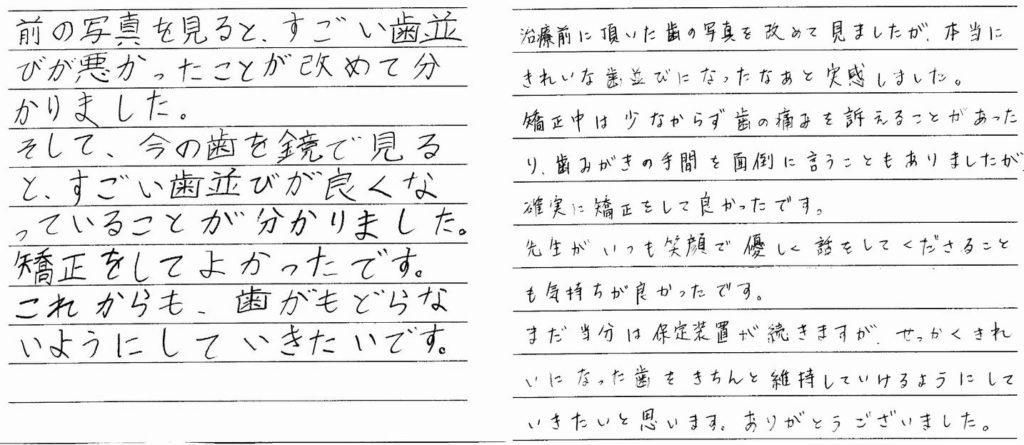 前の写真を見ると、すごい歯並
びが悪かったことが改めて分
かりました。
そして、今の歯を鏡で見る
と、すごい歯並びが良くな
っていることが分かりました。
矯正をしてよかったです。
これからも、歯がもどらな
いようにしていきたいです。
治療前に頂いた歯の写真を改めて見ましたが、本当に
きれいな歯並びになったなあと実感しました。
矯正中は少なからず歯の痛みを訴えることがあった
り、歯みがきの手間を面倒に言うこともありましたが
確実に矯正をして良かったです。
先生がいつも笑顔で優しく話をしてくださること
も気持ちが良かったです。
まだ当分は保定装置が続きますが、せっかくきれ
いになった歯をきちんと維持していけるようにして
いきたいと思います。ありがとうございました。